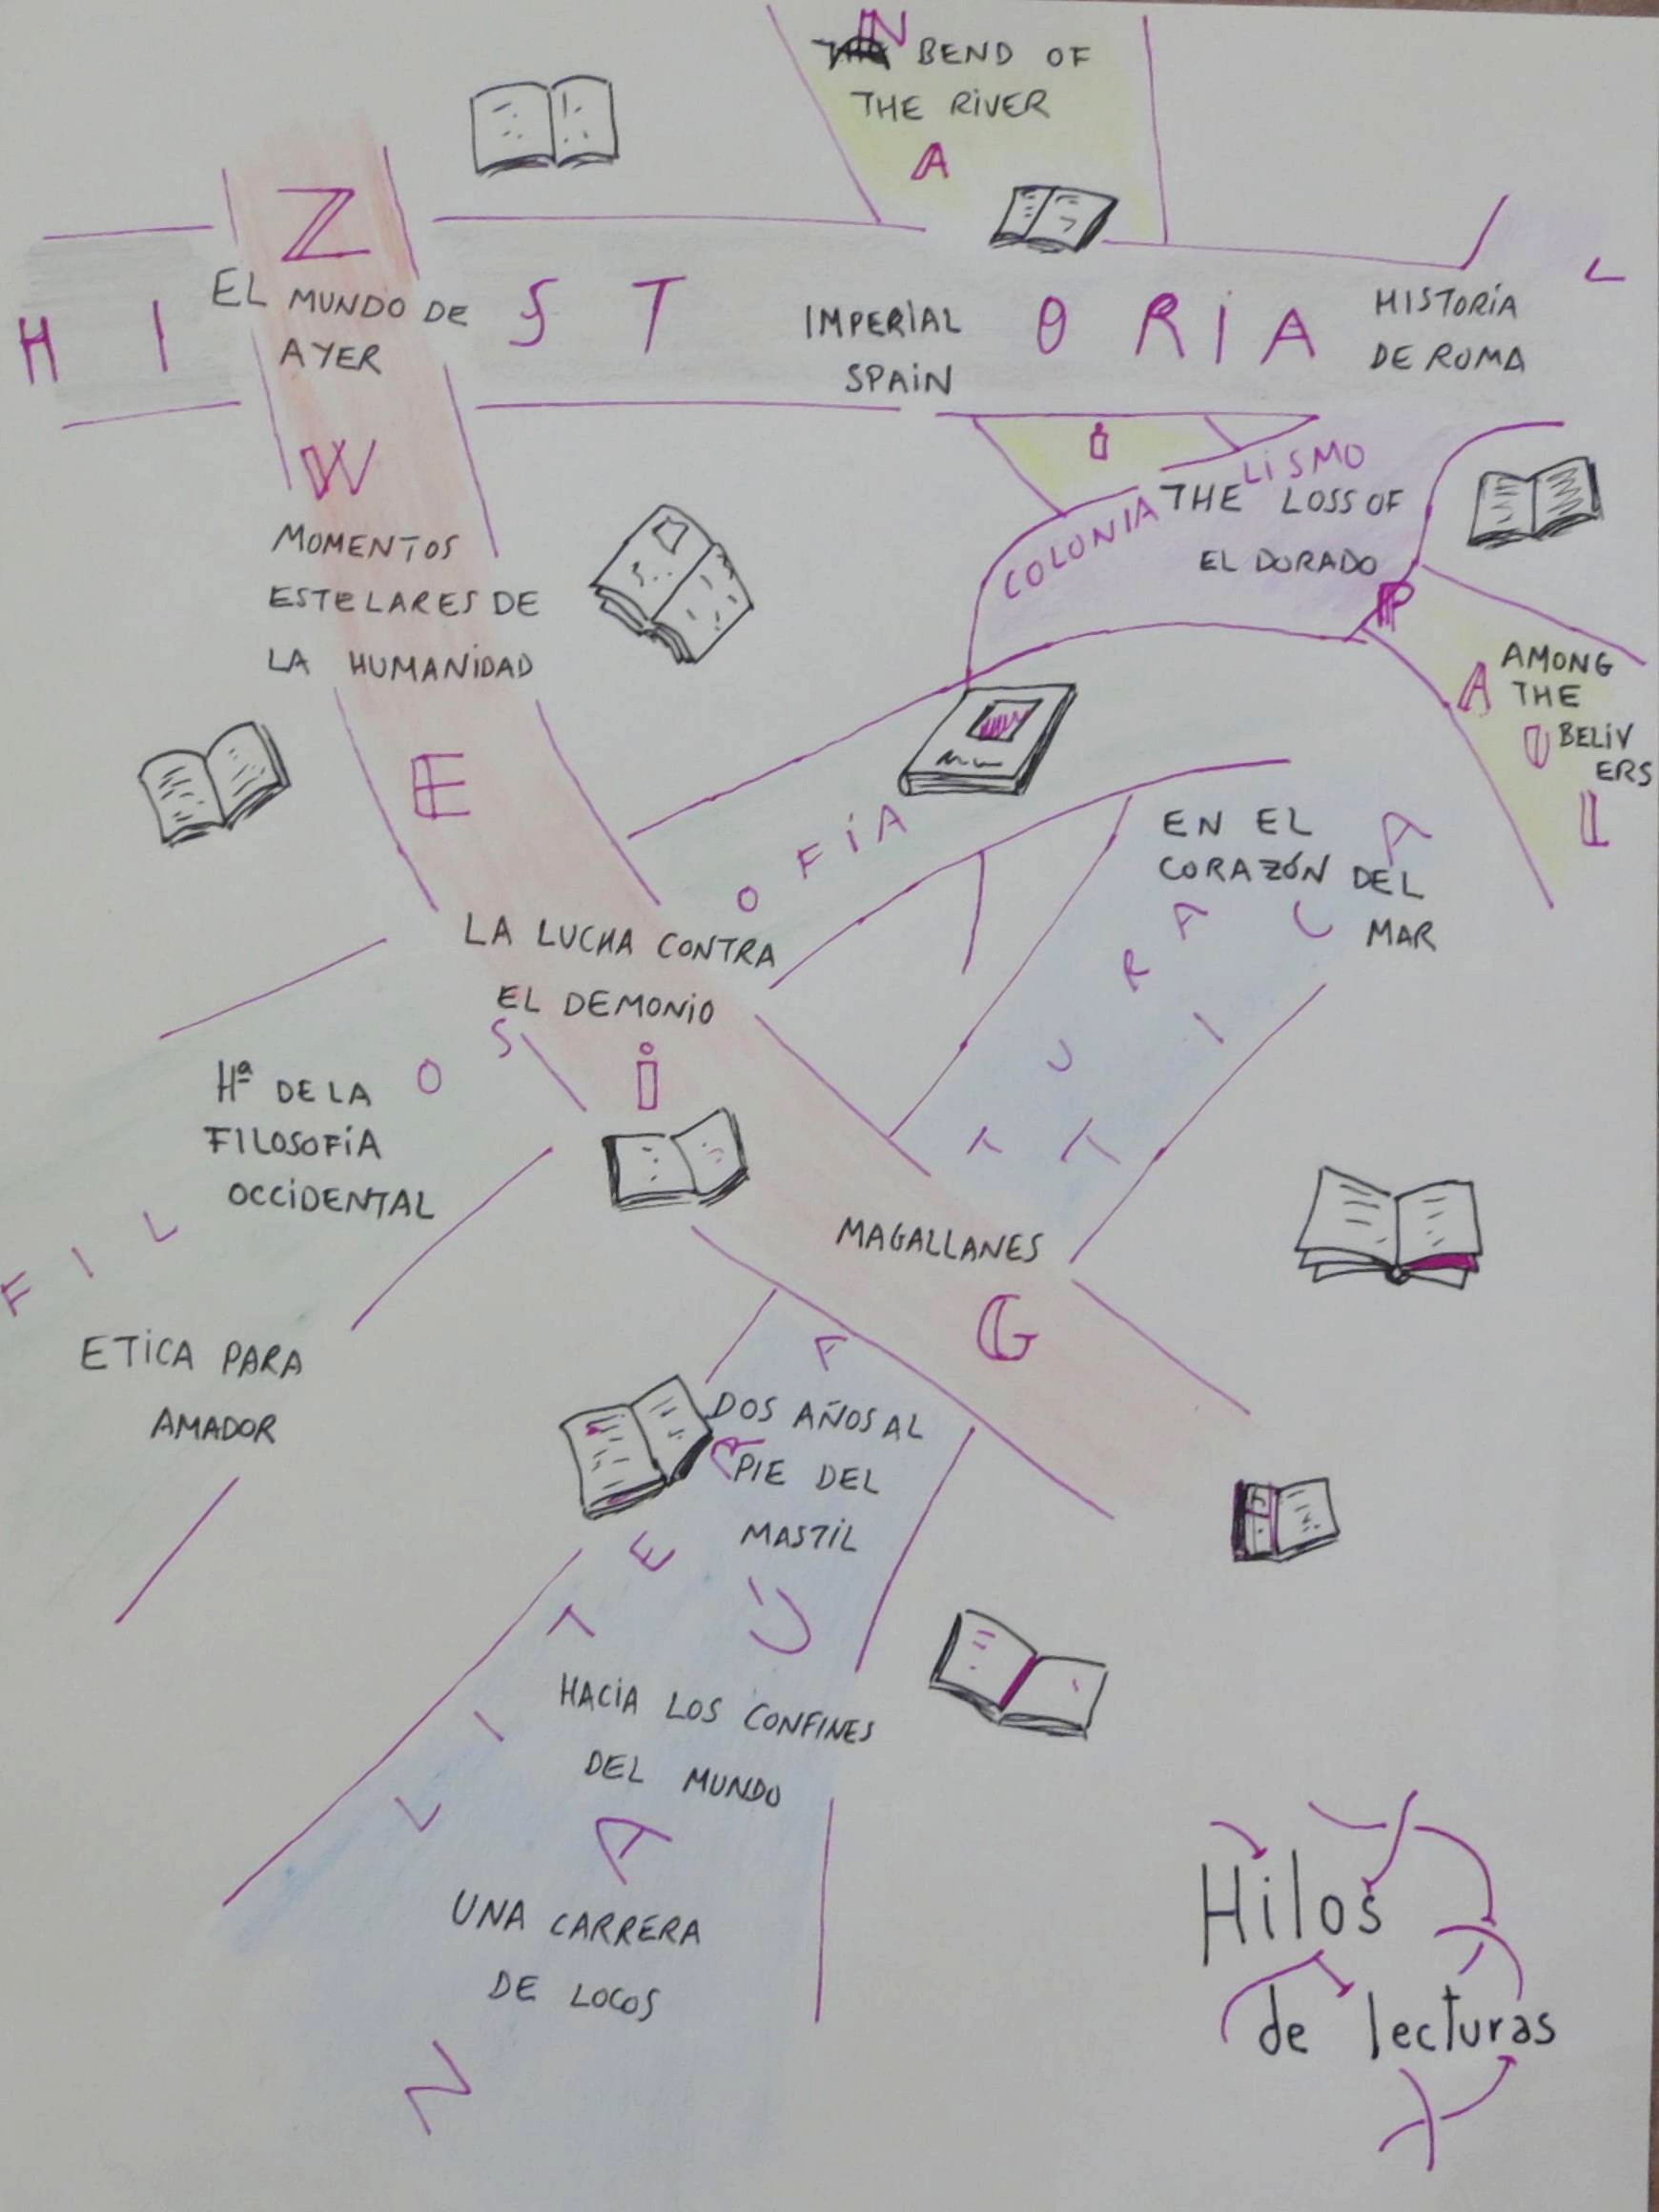 IN BEND OF
THE RIVER
N A i P A U L
Z W E i G
EL MUNDO DE
AYER
H I S T O R I A
IMPERIAL
SPAIN
HISTORIA
DE ROMA
L
COLONIALISMO
THE LOSS OF
EL DORADO
MOMENTOS
ESTELARES DE
LA HUMANIDAD
AMONG
THE
BELIV
ERS
EN EL
CORAZÓN DEL
MAR
LA LUCHA CONTRA
EL DEMONIO
F I L O S O F I A
Hª DE LA
FILOSOFIA
OCCIDENTAL
ETICA PARA
AMADOR
MAGALLANES
L I T E R A T U R A
N A Ú T I C A
DOS AÑOS AL
PIE DEL
MASTIL
HACIA LOS CONFINES
DEL MUNDO
UNA CARRERA
DE LOCOS
Hilos
de lecturas